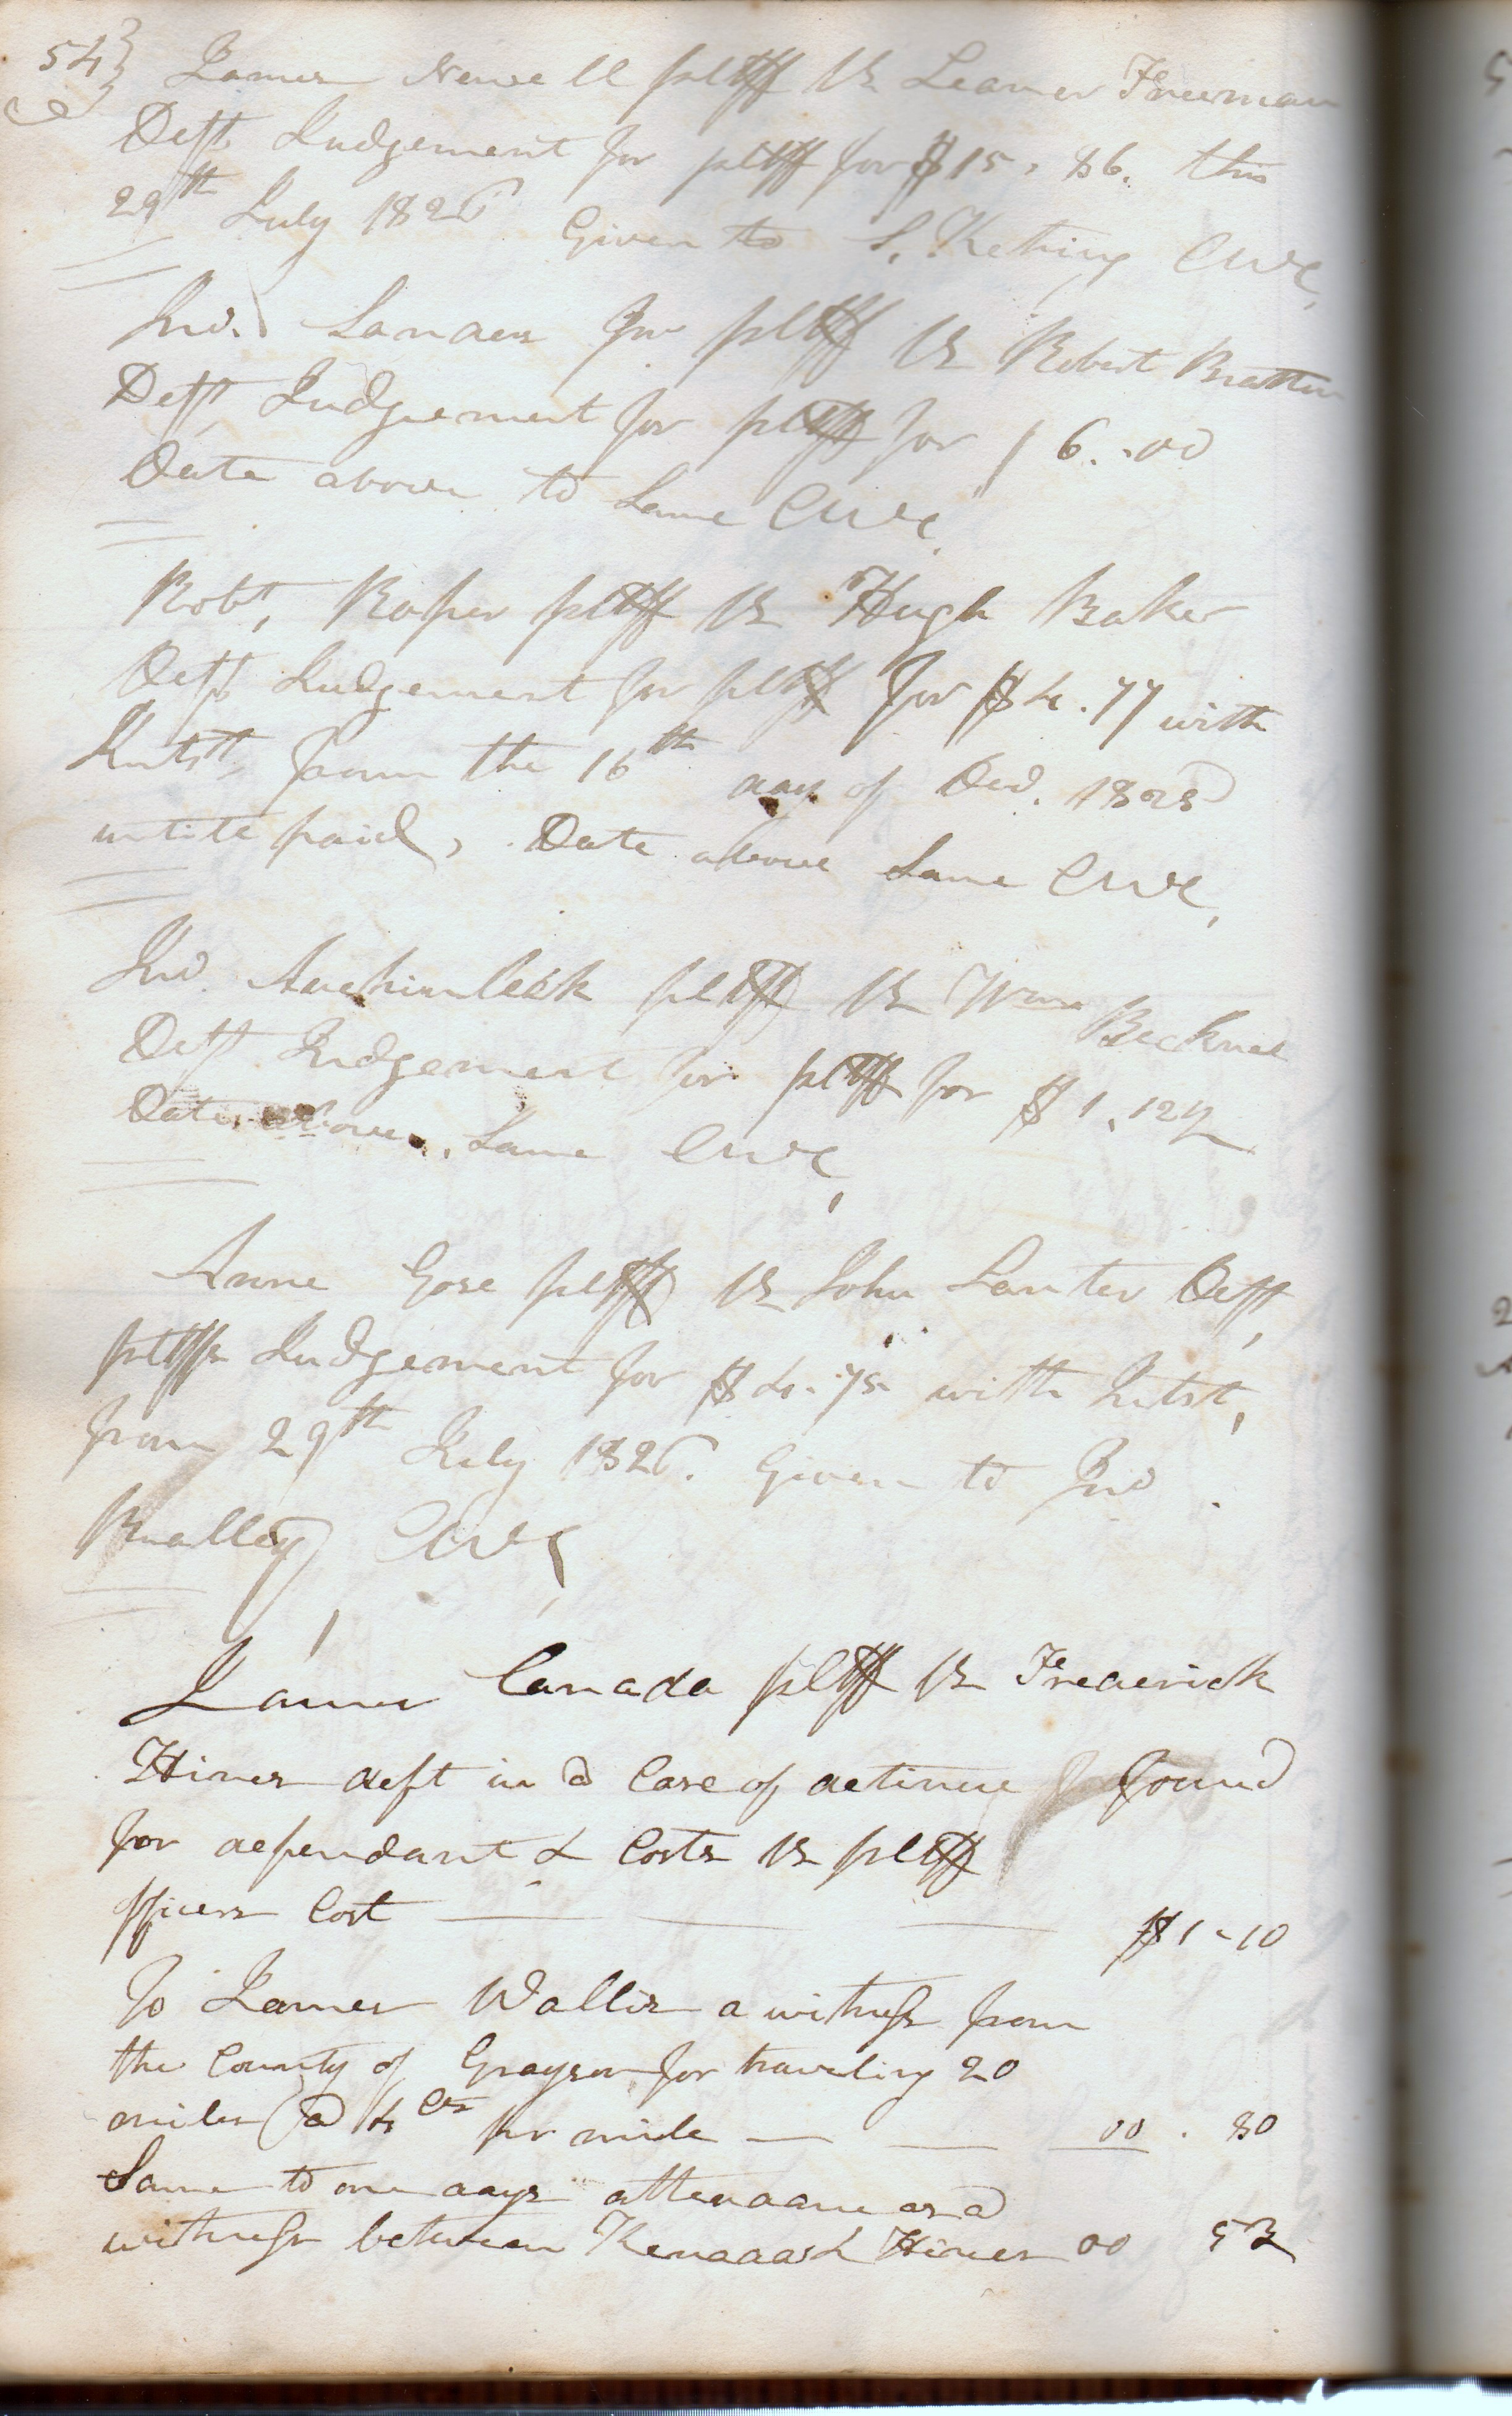 54} James Newell pltff vs Leamer Freeman
Deft Judgement for pltff for $15.86. this
29th July 1826 Given to S. Kething CWC,
Jno. Landers for pltff vs Robert Bratten
Deft Judgement for pltff for $6..00
Date above to Same CWC.
Robt, Roper pltff vs Hugh Baker
Deft Judgement for pltff for $4.77 with
Intst, from the 16th day of Decd. 1825
untill paid, Date above Same CWC,
Jno. Auchinleck pltff vs Wm Becknel
Deft Judgement for pltff for $1.12½
Date above. Same CWC,
Anne Gose pltff vs John Lanter Deft,
pltffs Judgement for $4.75 with Intst,
from 29th July 1826. Given to Jno
Bralley CWC,
James Canada pltff vs Frederick
Hines deft in a Case of detinue found
for defendant & Costs vs pltff
officers Cost $1-10
To James Wallis a witness from
the County of Grayson for traveling 20
miles @ 4 cts pr mile 00.80
Same to one days attendance as a
witness between Kenada & Hines 00 53